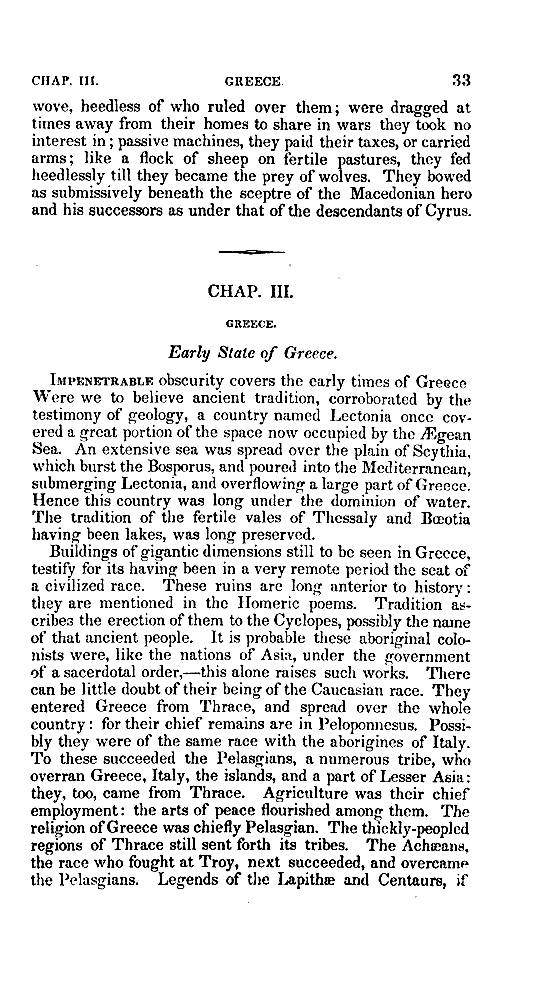 CHAP. III. GREECE. 33
wove, heedless of who ruled over them; were dragged at
times away from their homes to share in wars they took no
interest in; passive machines, they paid their taxes, or carried
arms; like a flock of sheep on fertile pastures, they fed
heedlessly till they became the prey of wolves. They bowed
as submissively beneath the sceptre of the Macedonian hero
and his successors as under that of the descendants of Cyrus.
CHAP. III.
GREECE.
Early State of Greece.
IMPENETRABLE obscurity covers the early times of Greece
Were we to believe ancient tradition, corroborated by the
testimony of geology, a country named Lectonia once cov-
ered a great portion of the space now occupied by the Ægean
Sea. An extensive sea was spread over the plain of Scythia,
which burst the Bosporus, and poured into the Mediterranean,
submerging Lectonia, and overflowing a large part of Greece.
Hence this country was long under the dominion of water.
The tradition of the fertile vales of Thessaly and Bœotia
having been lakes, was long preserved.
Buildings of gigantic dimensions still to be seen in Greece,
testify for its having been in a very remote period the seat of
a civilized race. These ruins are long anterior to history:
they are mentioned in the Homeric poems. Tradition as-
cribes the erection of them to the Cyclopes, possibly the name
of that ancient people. It is probable these aboriginal colo-
nists were, like the nations of Asia, under the government
of a sacerdotal order,—this alone raises such works. There
can be little doubt of their being of the Caucasian race. They
entered Greece from Thrace, and spread over the whole
country: for their chief remains are in Peloponnesus. Possi-
bly they were of the same race with the aborigines of Italy.
To these succeeded the Pelasgians, a numerous tribe, who
overran Greece, Italy, the islands, and a part of Lesser Asia:
they, too, came from Thrace. Agriculture was their chief
employment: the arts of peace flourished among them. The
religion of Greece was chiefly Pelasgian. The thickly-peopled
regions of Thrace still sent forth its tribes. The Achæans,
the race who fought at Troy, next succeeded, and overcame
the Pelasgians. Legends of the Lapithæ and Centaurs, if